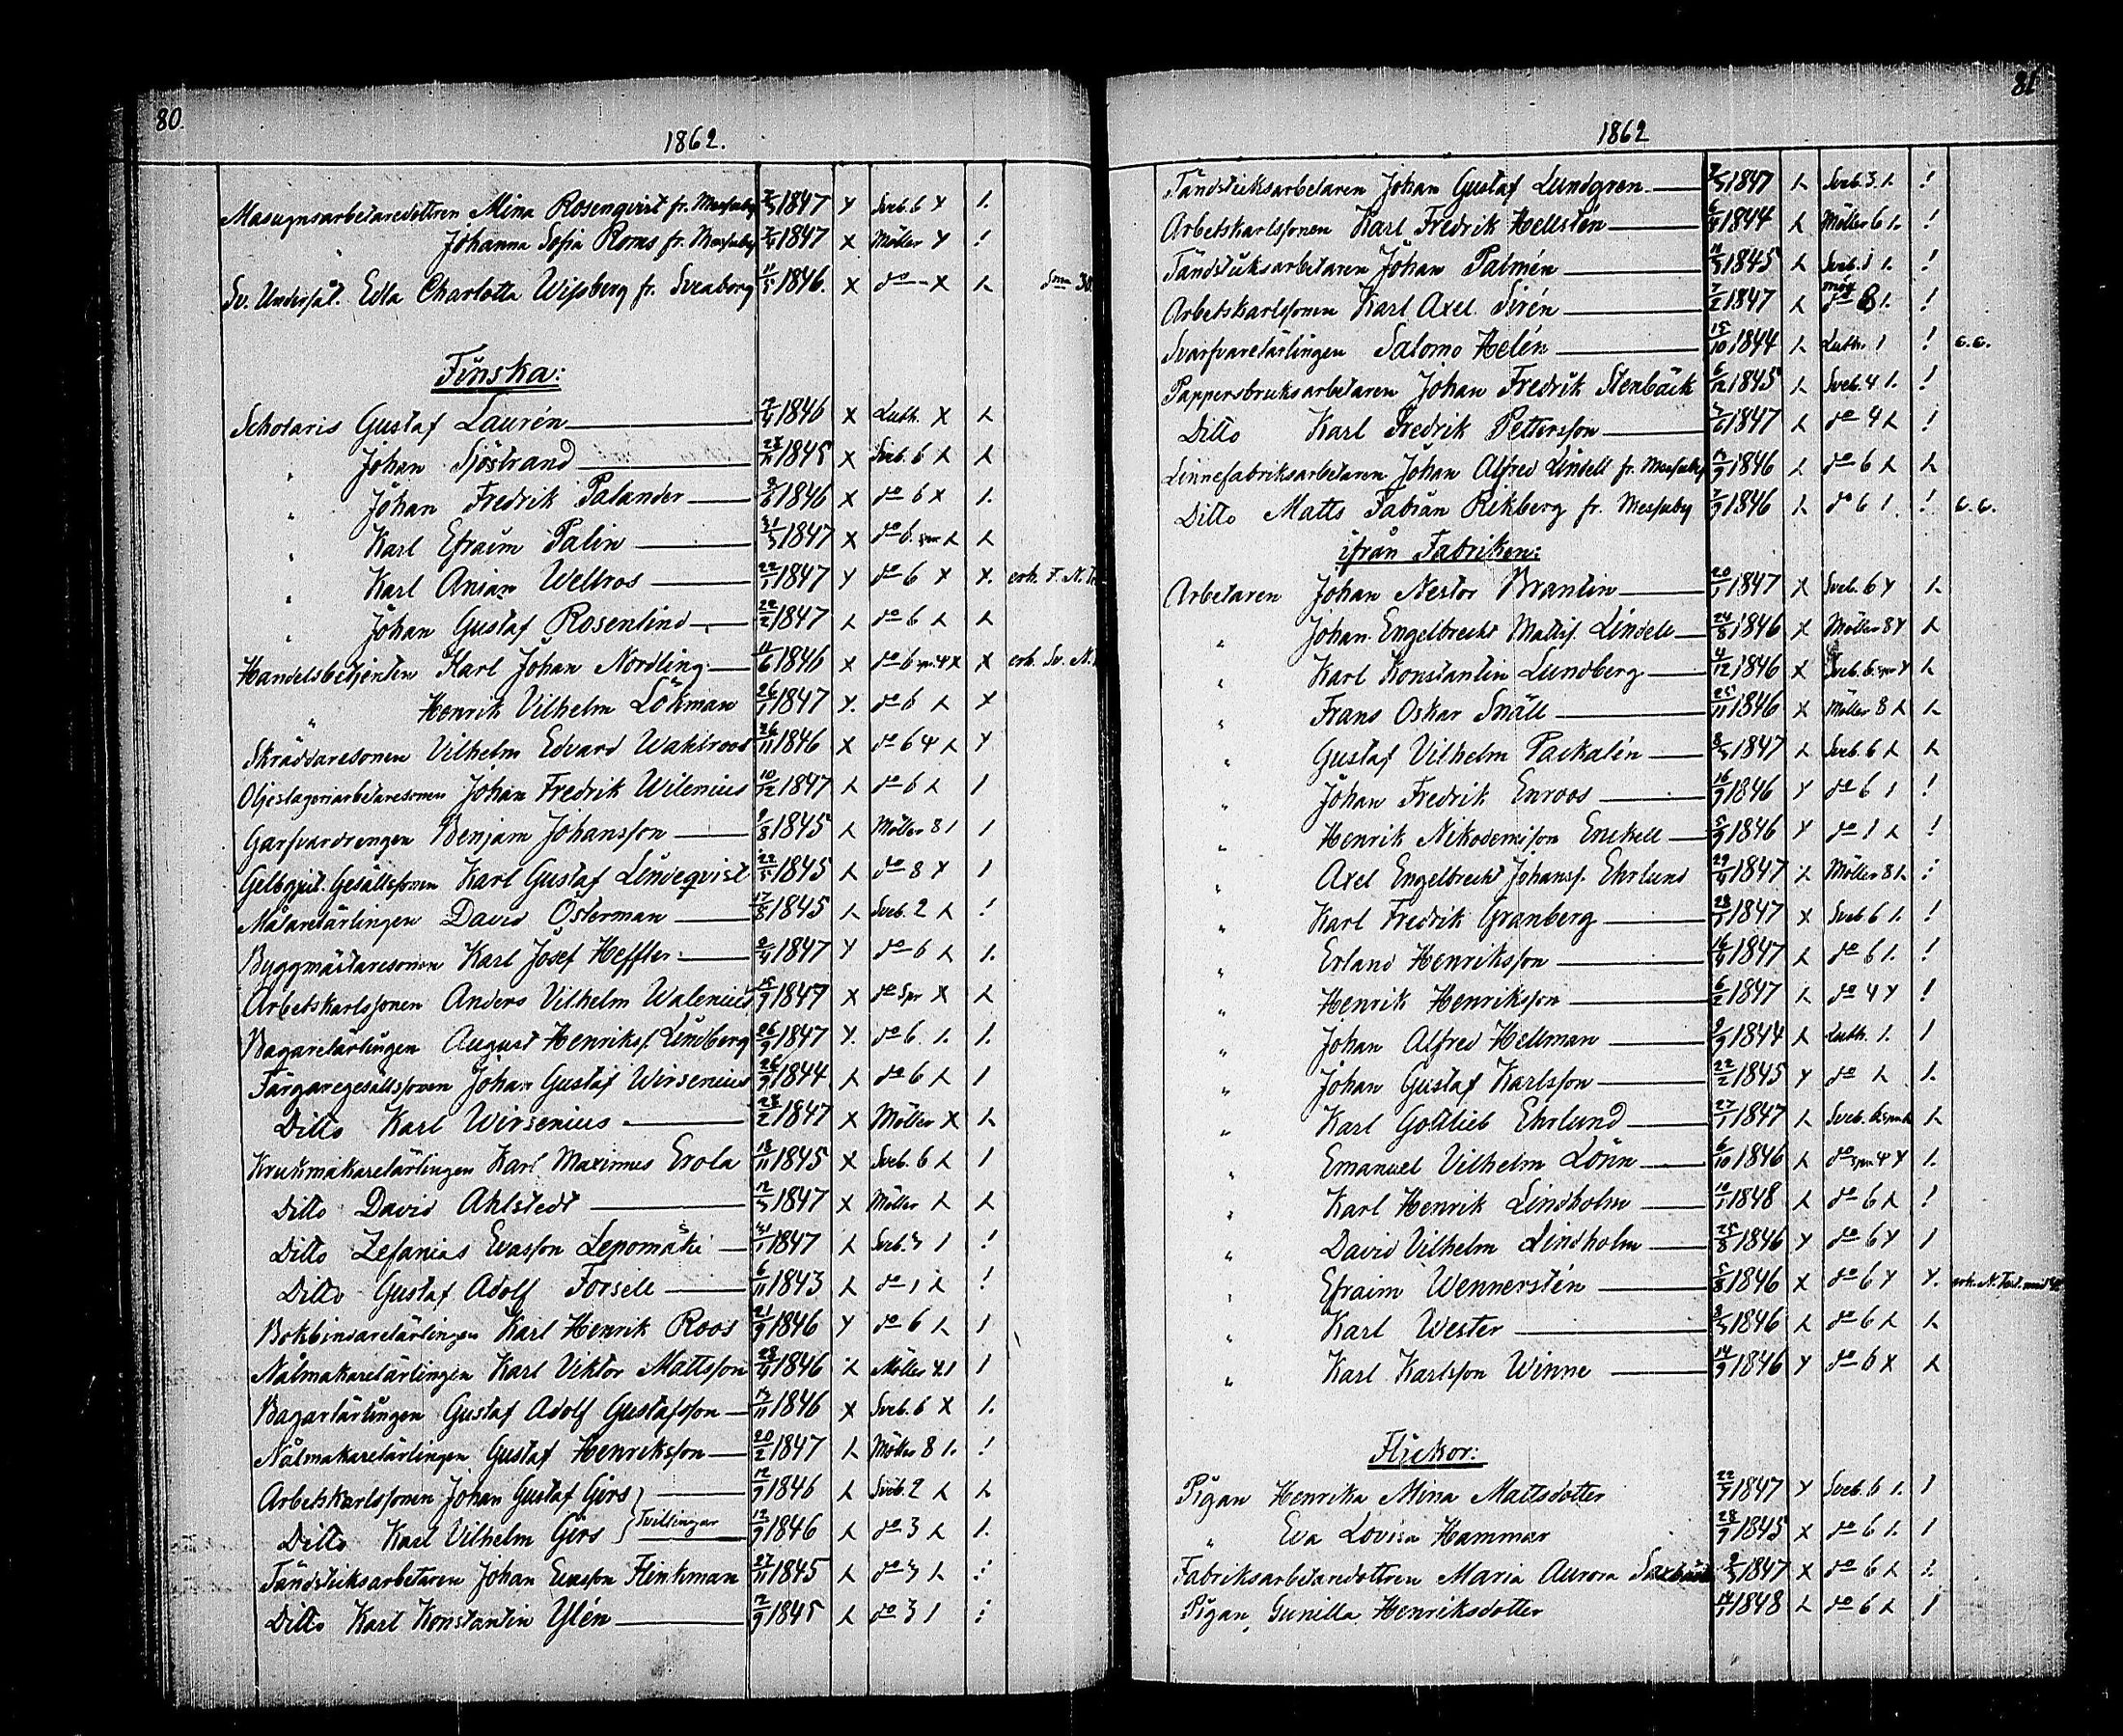 80.
1862.
Masugnsarbetaredottren Mina Rosenqvist fr. Messuby 1847 x Sveb. 6 x 1.
" Johanna Sofia Roms fr. Messuby 1847 x Möller x !
Sv. Undersåt. Edla Charlotta Wissberg fr. Sveaborg 11/5 1846. x do x λ
Finska:
Scholaris Gustaf Laurén 1846 x Luth. x λ
" Johan Sjöstrand 1845 x Sveb. 6 λ λ
" Johan Fredrik Palander 1846 x do 6 x 1.
" Karl Efraim Palin 1847 x do 6. spr λ λ
" Karl Anian Wellros 22/1 1847 x do 6 x x. erh. F. N. T.
" Johan Gustaf Rosenlind 22/2 1847 λ do 6 λ λ
Handelsbetjenten Karl Johan Nordling 11/6 1846 x do 6 spr. 4 x x erh. Sv. N.
" Henrik Vilhelm Lökman 26/1 1847 x. do 6 λ x
Skräddaresonen Vilhelm Edvard Wahlroos 26/11 1846 x do 6 4 λ x
Oljeslageriarbetaresonen Johan Fredrik Wilenius 10/12 1847 λ do 6 λ 1
Garfvardrengen Benjam Johansson 9/8 1845 λ Möller 8 1 1
Gelbgjut. Gesällssonen Karl Gustaf Lindeqvist 22/5 1845 λ do 8 x 1
Målarelärlingen David Österman 17/8 1845 λ Sveb. 2 λ !
Byggmästaresonen Karl Josef Heffler 1847 x do 6 λ 1.
Arbetskarlssonen Anders Vilhelm Walenius 15/9 1847 x do spr x λ
Bagarelärlingen August Henrikss. Lindberg 26/9 1847 x. do 6. 1. 1.
Färgaregesällssonen Johan Gustaf Wirsenius 26/9 1844 λ do 6 λ 1
Ditto Karl Wirsenius 28/2 1847 x Möller x λ
Krukmakarelärlingen Karl Maximus Erola 18/11 1845 x Sveb. 6 λ 1
Ditto David Ahlstedt 12/3 1847 x Möller λ λ
Ditto Zefanias Evasson Lepomäki 1847 λ Sveb. 3 1 !
Ditto Gustaf Adolf Forsell 6/11 1843 λ do 1 λ !
Bokbindarelärlingen Karl Henrik Roos 21/9 1846 x do 6 λ 1
Nålmakarelärlingen Karl Viktor Mattsson 1846 λ Möller 4 1 1
Bagarlärlingen Gustaf Adolf Gustafsson 1846 x Sveb. 6 x 1.
Nålmakarelärlingen Gustaf Henriksson 20/2 1847 λ Möller 8 1. !
Arbetskarlssonen Johan Gustaf Girs 12/9 1846 λ Sveb. 2 λ λ
Ditto Karl Vilhelm Girs } Tvillingar 12/9 1846 λ do 3 λ 1.
Tändsticksarbetaren Johan Evasson Flinkman 27/11 1845 λ do 3 λ !
Ditto Karl Konstantin Ylén 1845 λ do 3 1 !
81
1862
Tändsticksarbetaren Johan Gustaf Lundgren 1847 λ Sveb. 3. 1. !
Arbetskarlssonen Karl Fredrik Hellsten 1844 λ Möller 6 1. !
Tändsticksarbetaren Johan Palmén 11/3 1845 λ Sveb. 1 1. !
Arbetskarlssonen Karl Axel Sirén 7/2 1847 λ do 8 1. !
Svarfvarelärlingen Salomo Helén 15/10 1844 λ Luth. 1 ! c.c.
Pappersbruksarbetaren Johan Fredrik Stenbäck 6/12 1845 λ Sveb. 4 1. !
Ditto Karl Fredrik Pettersson 1847 λ do 4 λ !
Linnefabriksarbetaren Johan Alfred Lindell fr. Messuby 1846 λ do 6 λ λ
Ditto Matts Fabian Rikberg fr. Messuby 1846 λ do 6 1. ! c.c.
ifrån Fabriken:
Arbetaren Johan Nestor Brantin 20/1 1847 x Sveb. 6 x 1.
" Johan Engelbrecht Mattss. Lindell 24/8 1846 x Möller 8 x λ
" Karl Konstantin Lundberg 4/12 1846 x Sveb. 6. spr x λ
" Frans Oskar Snäll 25/11 1846 x Möller 8 λ λ
" Gustaf Vilhelm Packalén 8/3 1847 λ Sveb. 6 λ λ
" Johan Fredrik Enroos 16/9 1846 x do 6 1 !
" Henrik Nikodemisson Enckell 5/9 1846 x do 1 λ !
" Axel Engelbrecht Johanss. Ehrlund 1847 λ Möller 8 λ !
" Karl Fredrik Granberg 28/1 1847 x Sveb 6 1. !
" Erland Henriksson 1847 λ do 6 1. !
" Henrik Henriksson 6/2 1847 λ do 4 x !
" Johan Alfred Hellman 9/9 1844 λ Luth. 1. 1
" Johan Gustaf Karlsson 22/2 1845 x do λ 1.
" Karl Gottlieb Ehrlund 27/1 1847 λ Sveb. 6 spr λ λ
" Emanuel Vilhelm Lönn 6/10 1846 λ do spr 4 x 1.
" Karl Henrik Lindholm 10/1 1848 λ do 6 λ !
" David Vilhelm Lindholm 25/8 1846 x do 6 x 1
" Efraim Wennerstén 5/8 1846 x do 6 x x. erh. N. Test.
" Karl Wester 8/3 1846 λ do 6 λ λ
" Karl Karlsson Winne 14/9 1846 x do 6 x λ
Flickor:
Pigan Henrika Mina Mattsdotter 1847 x Sveb. 6 1. 1
" Eva Lovisa Hammar 28/9 1845 x do 6 1. 1
Fabriksarbetaredottren Maria Aurora 1847 x do 6 λ 1.
Pigan, Gunilla Henriksdotter 14/1 1848 λ do 6 λ 1